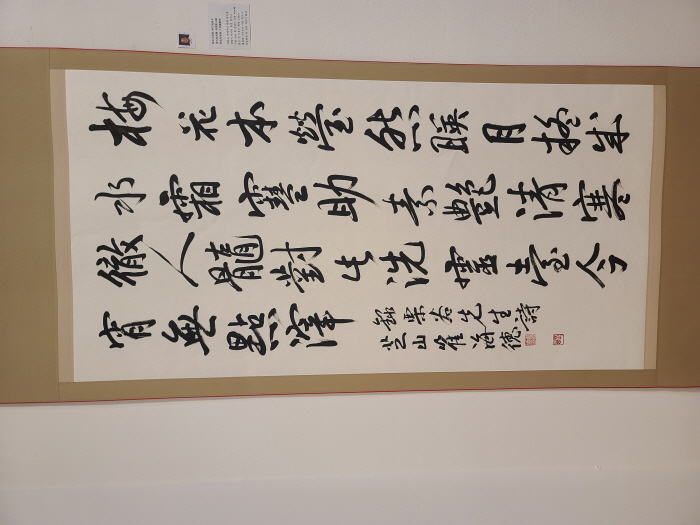 梅花本瑩然映月疑成
水霜雪助素艷清寒
徹人髓對此洗靈臺今
宵無點滓
錄栗谷先生詩
芝山崔海德